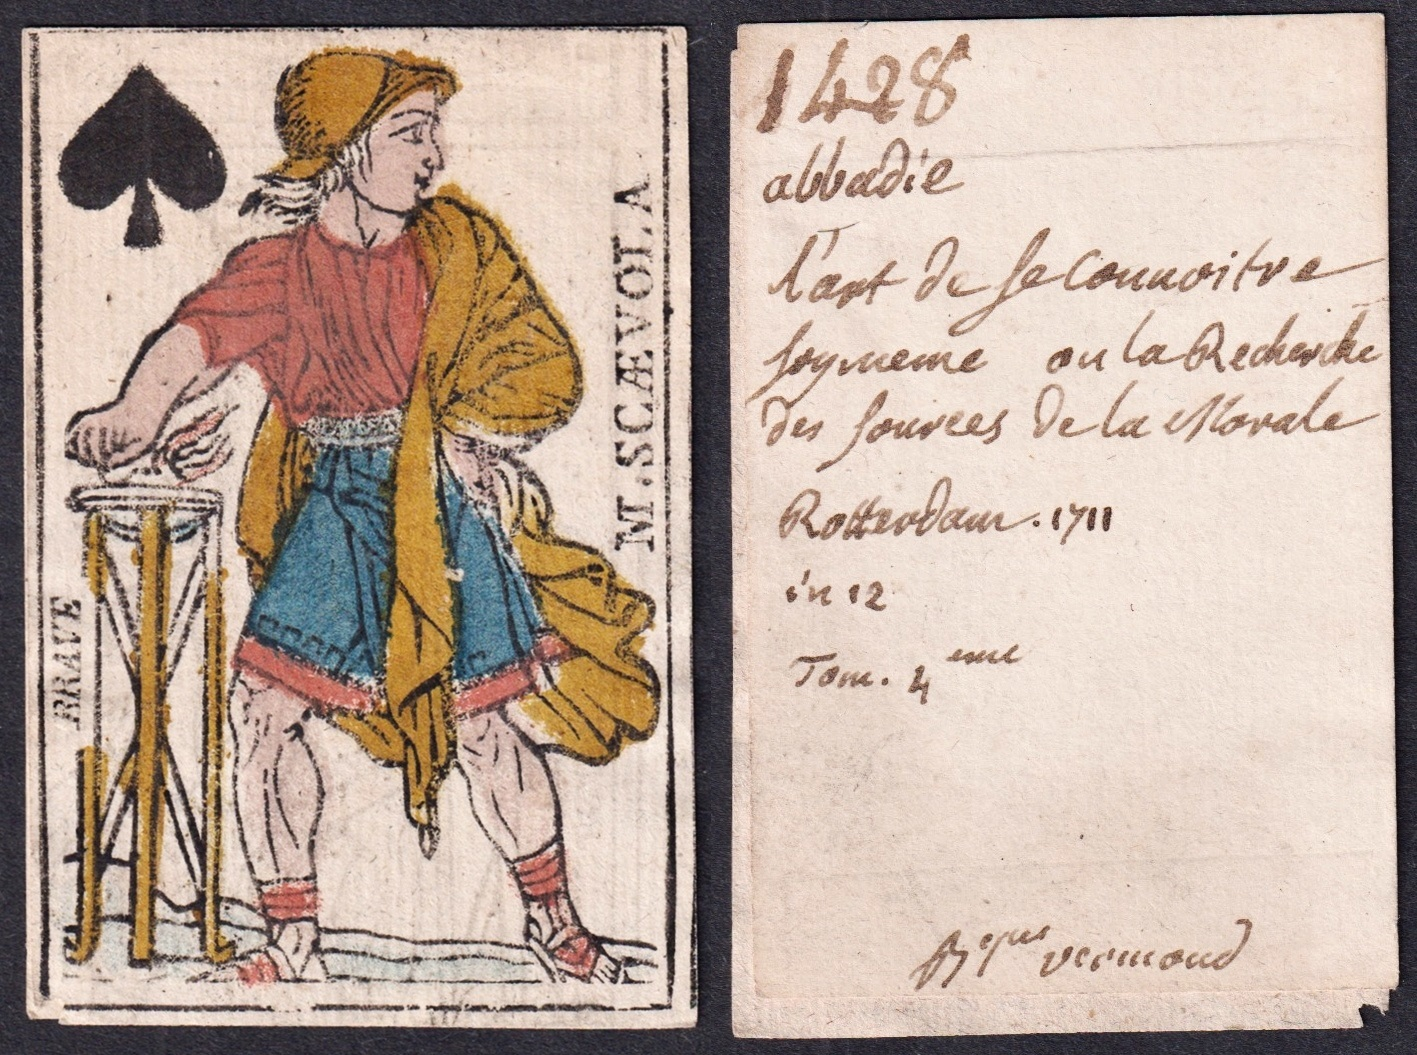 BRAVE
M. SCÆVOLA
1428
abbadie
l'art de se Connoitre
soymeme ou la Recherche
des sources de la Morale
Rotterdam. 1711
in 12
Tom. 4eme
vermond